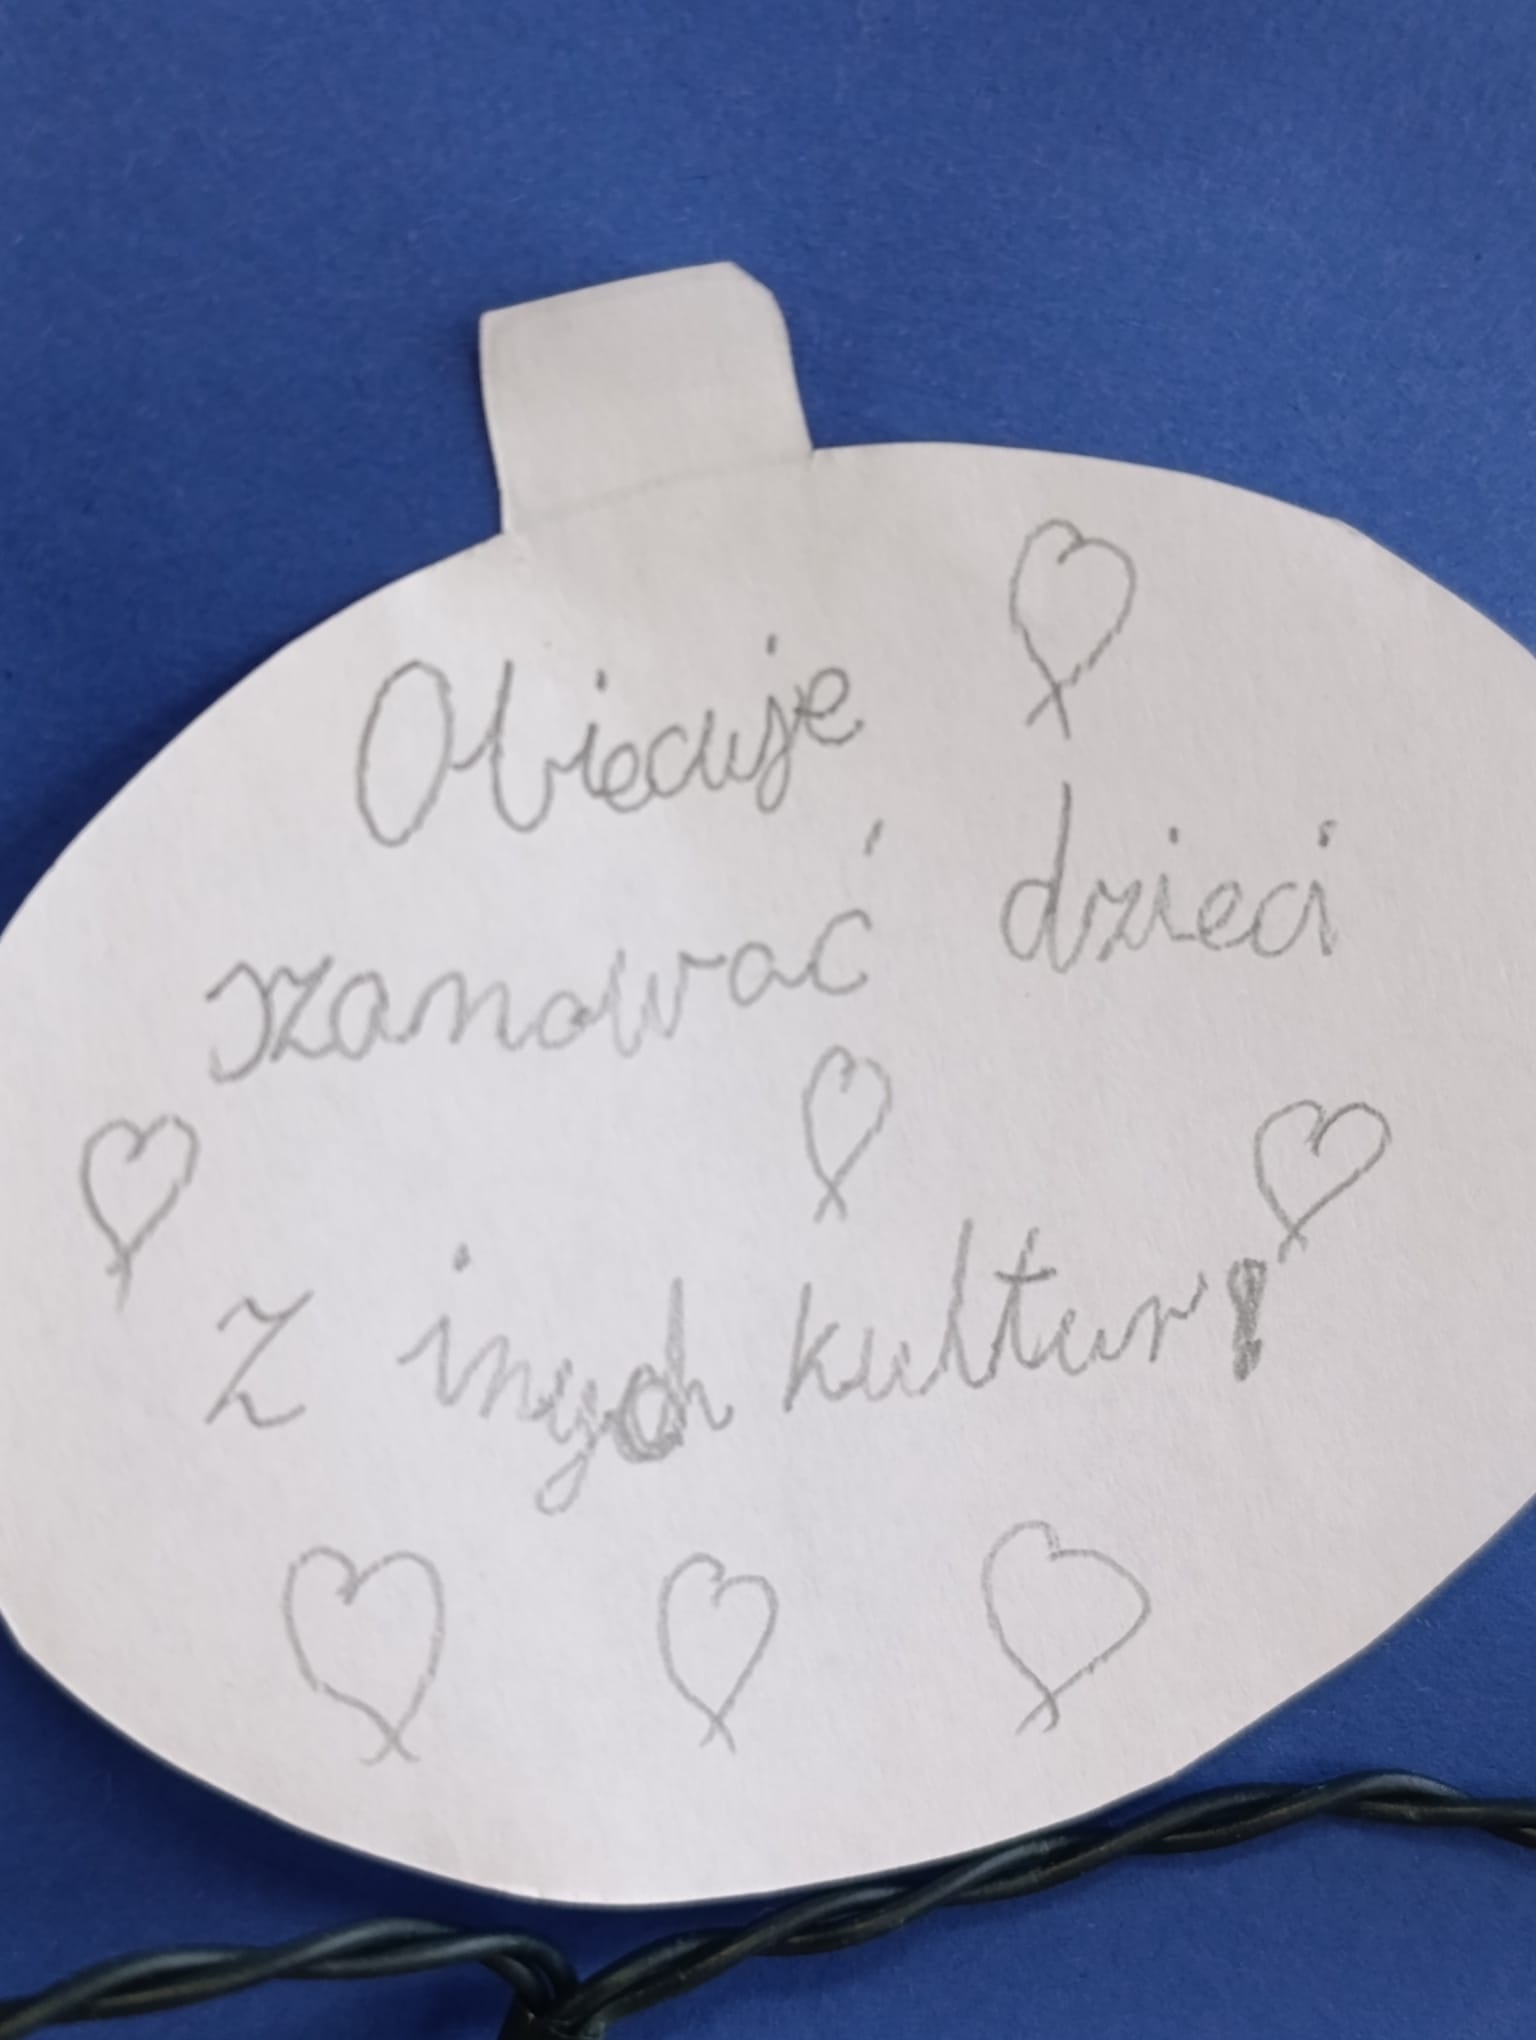 Obiecuje
szanować dzieci
z inych kultur!